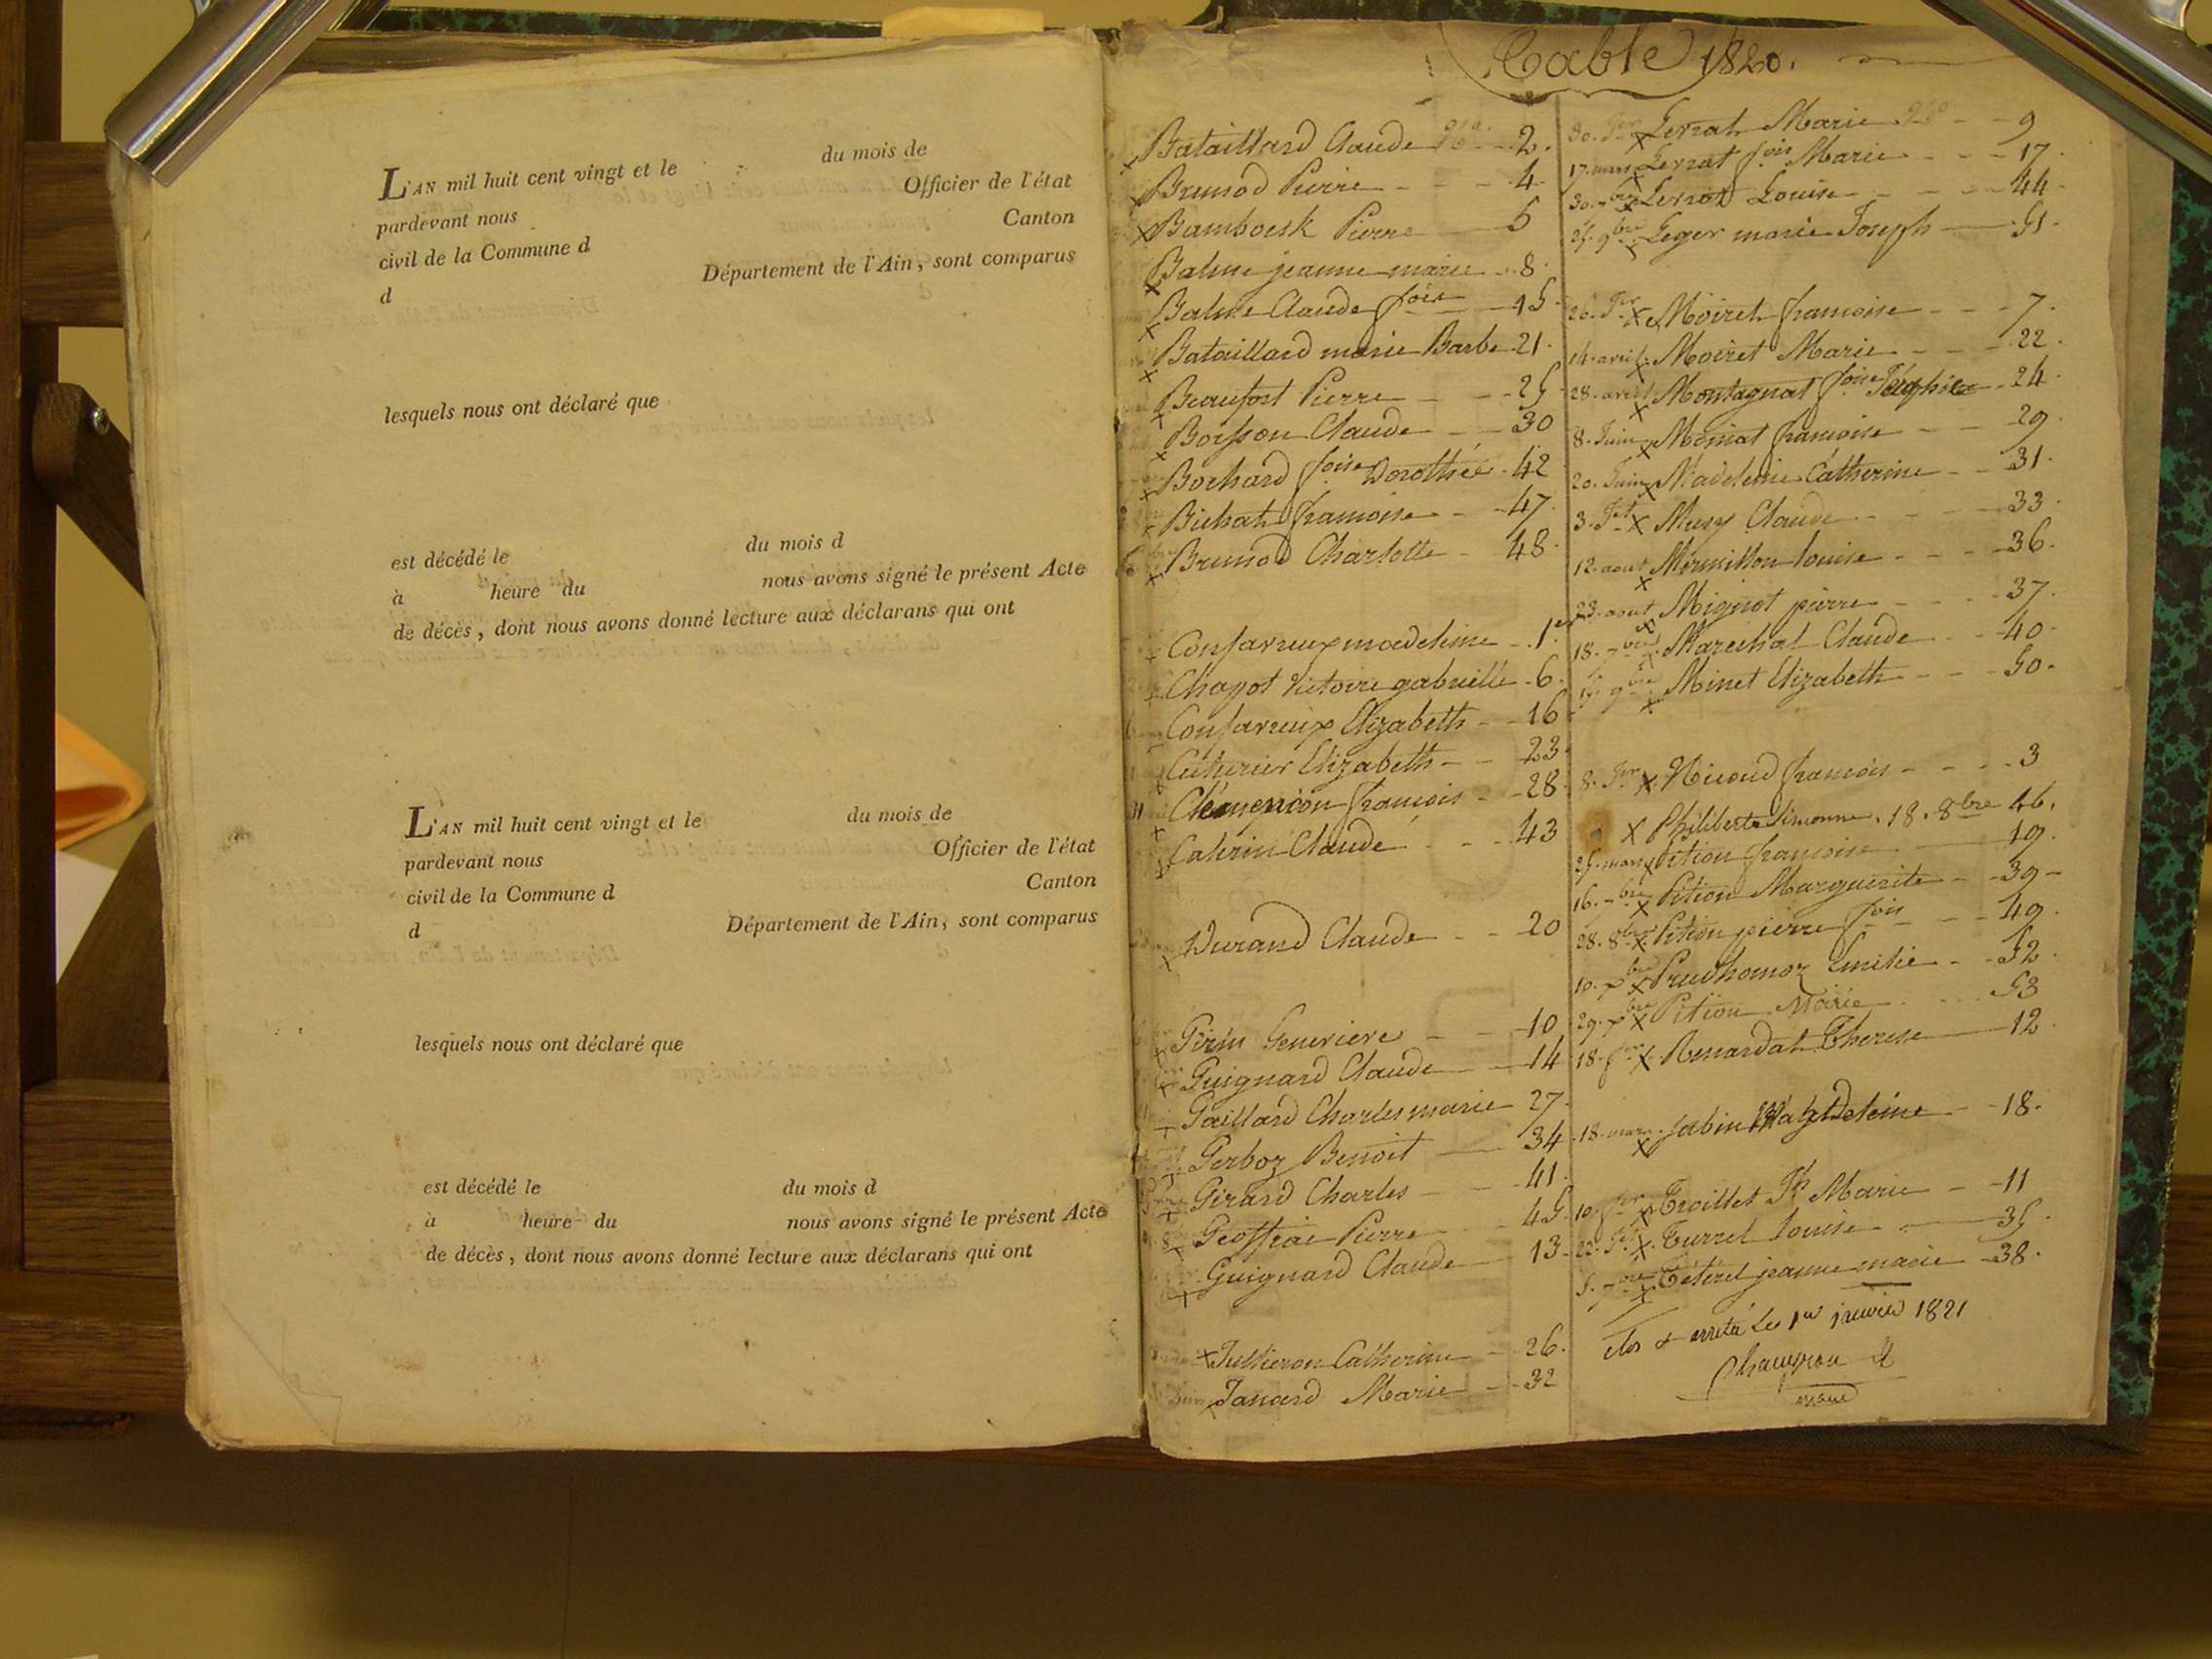 L'AN mil huit cent vingt et le du mois de
pardevant nous Officier de l'état
civil de la Commune d Canton
d Département de l'Ain, sont comparus
lesquels nous ont déclaré que
est décédé le du mois d
à heure du nous avons signé le présent Acte
de décès, dont nous avons donné lecture aux déclarans qui ont
L'AN mil huit cent vingt et le du mois de
pardevant nous Officier de l'état
civil de la Commune d Canton
d Département de l'Ain, sont comparus
lesquels nous ont déclaré que
est décédé le du mois d
à heure du nous avons signé le présent Acte
de décès, dont nous avons donné lecture aux déclarans qui ont
Table 1820.
x Bataillard Claude N.o 2.
x Brunod Pierre 4
x Bamboesk Pierre 5
x Balme jeanne marie 8
x Balme Claude fois 15
x Bataillard marie Barbe 21
x Beaufort Pierre 25
x Boisson Claude 30
x Bochard foise Dorothée 42
x Bichat francoise 47
x Brunod Charlotte 48
x Confavreux madeleine 1er
x Chapot Victoire gabrielle 6
Confavreux Elizabeth 16
Cuturier Elizabeth 23
x Clémencon francois 28
x Catherin Claude 43
x Durand Claude 20
x Girin Genevieve 10
x Guignard Claude 14
x Gaillard Charles marie 27
x Gerboz Benoit 34
x Girard Charles 41
x Geoffrai Pierre 45
x Guignard Claude 13
x Jullieron Catherine 26
x Janard Marie 32
30. Jer x Lerrat Marie 9
17. mars x Lerrat fois Marie 17
30. 7bre x Lerrat Louise 44
25. 9bre x Leger marie Joseph 51
26. Jer x Moiret francoise 7
14. avril x Moiret Marie 22
28. avril x Montagnat foise Josephte 24
8. Juin x francoise 29
20. Juin x Madeleine Catherine 31
3. Jet x Musy Claude 33
12. aout x Mermillon louise 36
23. aout x Mignot pierre 37
18. 7bre x Marechal Claude 40
15. 9bre x Minet Elizabeth 50
8. Jer x Nicoud francois 3
x Philiberte Simonne. 18. 8bre 46.
25. mars x Pition francoise 19
16. 7bre x Pition Marguerite 39
28. 8bre x Pition pierre fois 49
10. Xbre x Prudhomoz Emilie 52
29. Xbre x Pition Marie 53
18. fer x Renardat Therese 12
18. mars x Sabin Magdeleine 18
10. fer x Troillet Jh Marie 11
22. Jet x Turrel louise 35
5. 7bre x Téteret jeanne marie 38
clos & arreté le 1er janvier 1821